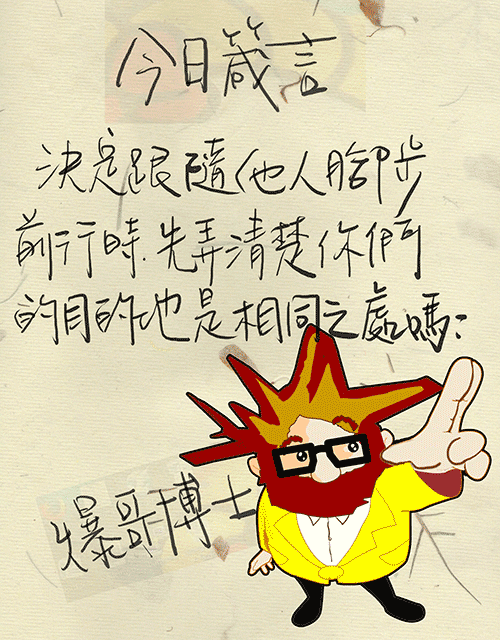 今日箴言
決定跟隨他人腳步
前行時.先弄清楚你們
的目的地是相同之處嗎:
爆哥博士